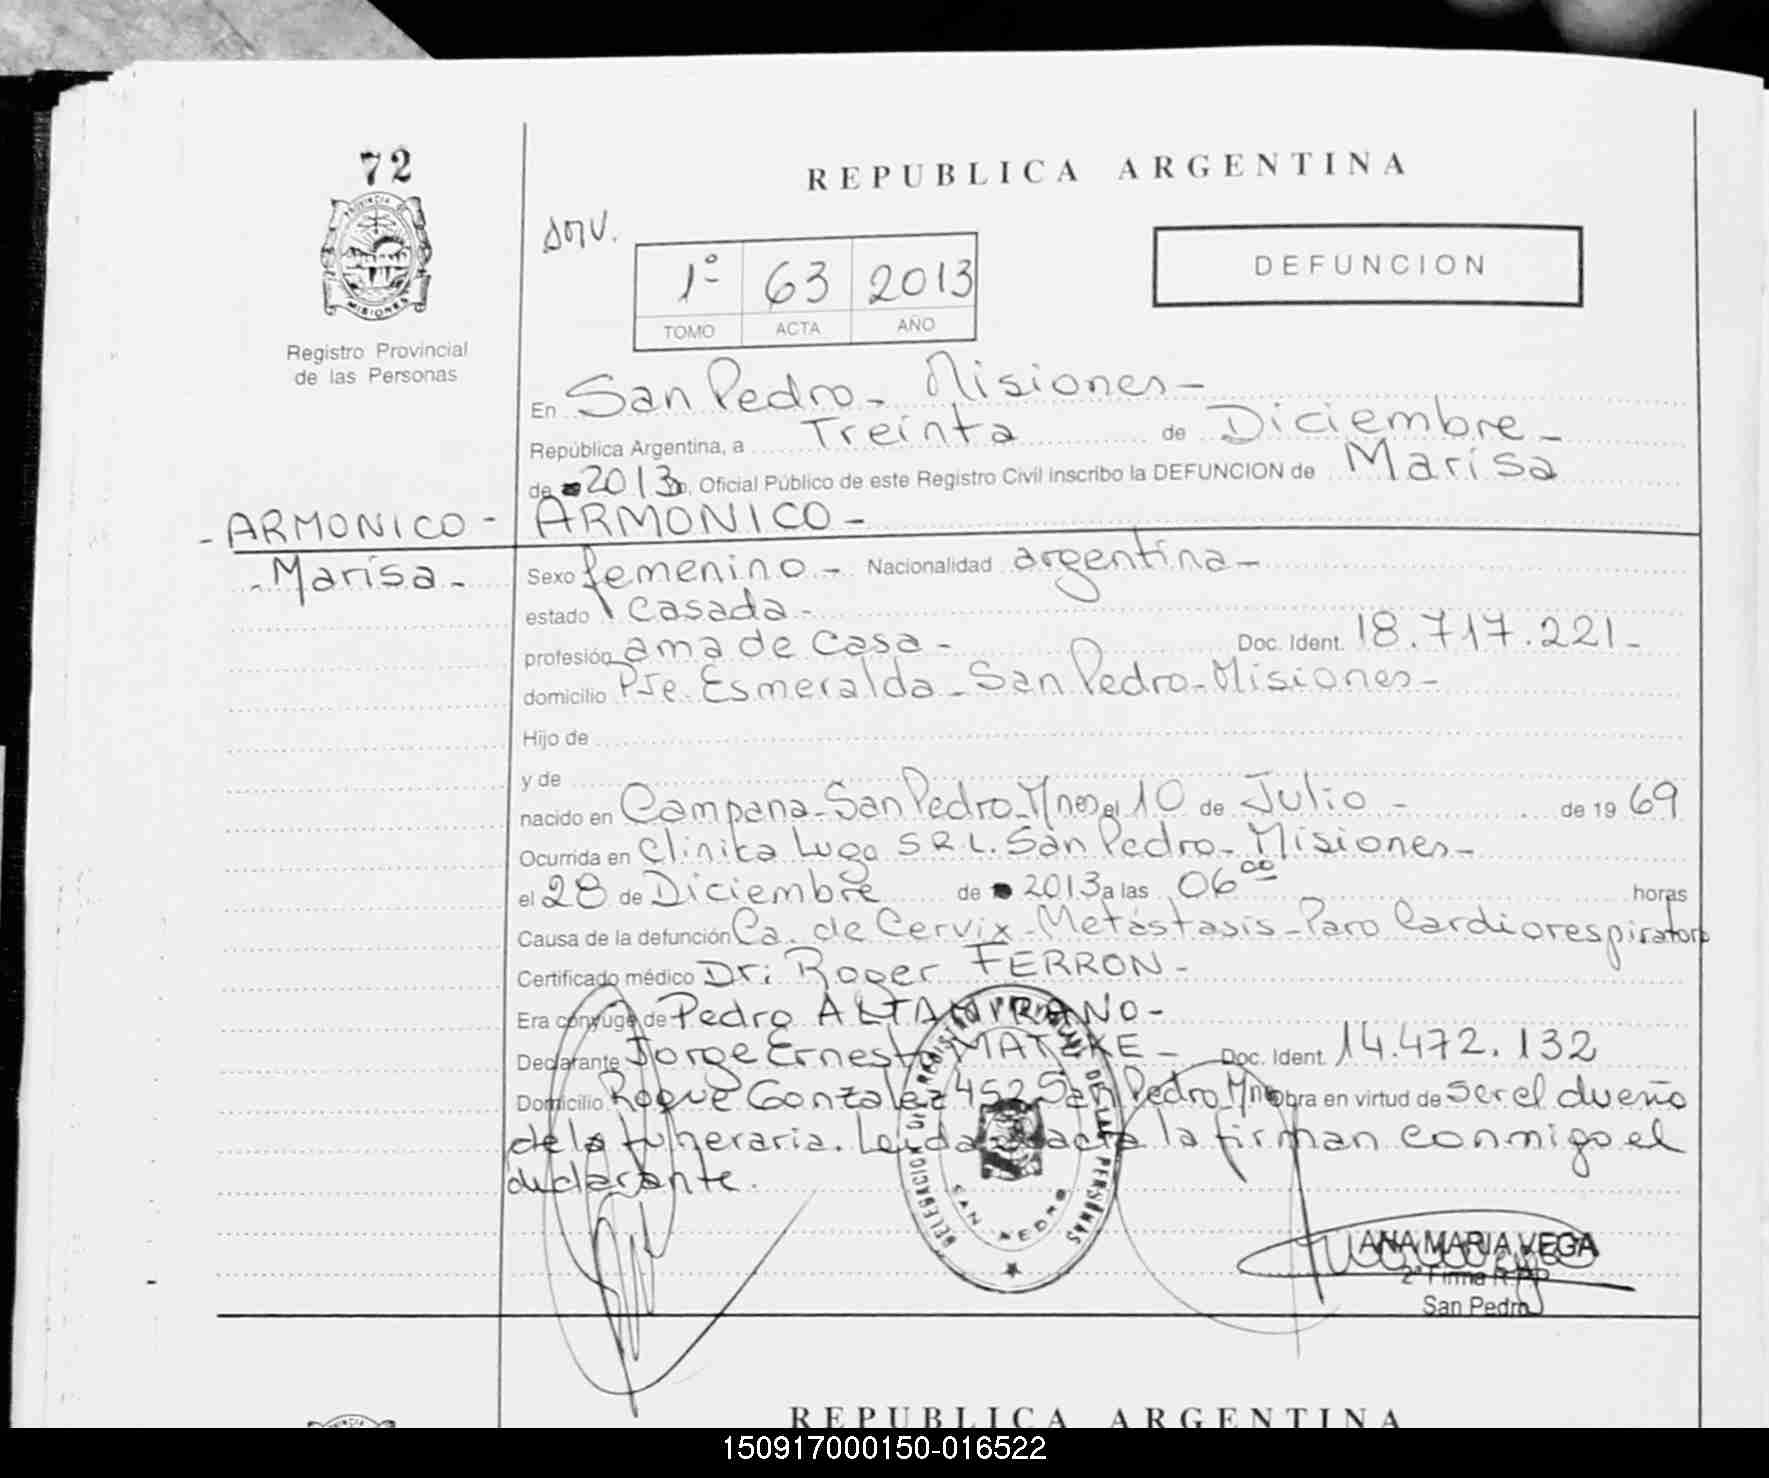 72
REPUBLICA ARGENTINA
PROVINCIA DE
MISIONES
Registro Provincial
de las Personas
1º 63 2013
TOMO ACTA AÑO
DEFUNCION
En San Pedro - Misiones -
República Argentina, a Treinta de Diciembre -
de 2013 Oficial Público de este Registro Civil inscribo la DEFUNCION de Marisa
- ARMONICO - ARMONICO -
- Marisa - Sexo femenino - Nacionalidad argentina -
estado casada -
profesión ama de casa - Doc. Ident. 18.717.221 -
domicilio Pje. Esmeralda - San Pedro - Misiones -
Hijo de
y de
nacido en Campana - San Pedro - Mnes el 10 de Julio - de 19 69
Ocurrida en Clinica Lugo S R L. San Pedro - Misiones -
el 28 de Diciembre de 2013 a las 06 00 horas
Causa de la defunción Ca. de Cervix - Metástasis - Paro Cardiorespiratorio
Certificado médico Dr: Roger FERRON -
Era cónyuge de Pedro ALTAMIRANO -
Declarante Jorge Ernesto MATZKE - Doc. Ident. 14.472.132
Domicilio Roque Gonzalez 452 San Pedro Mnes Obra en virtud de ser el dueño
de la funeraria. Leida el acta la firman conmigo el
declarante.
DELEGACION DEL REGISTRO PROVINCIAL DE LAS PERSONAS
SAN PEDRO
ANA MARIA VEGA
2ª Firma R.P.P
San Pedro
REPUBLICA ARGENTINA
150917000150-016522